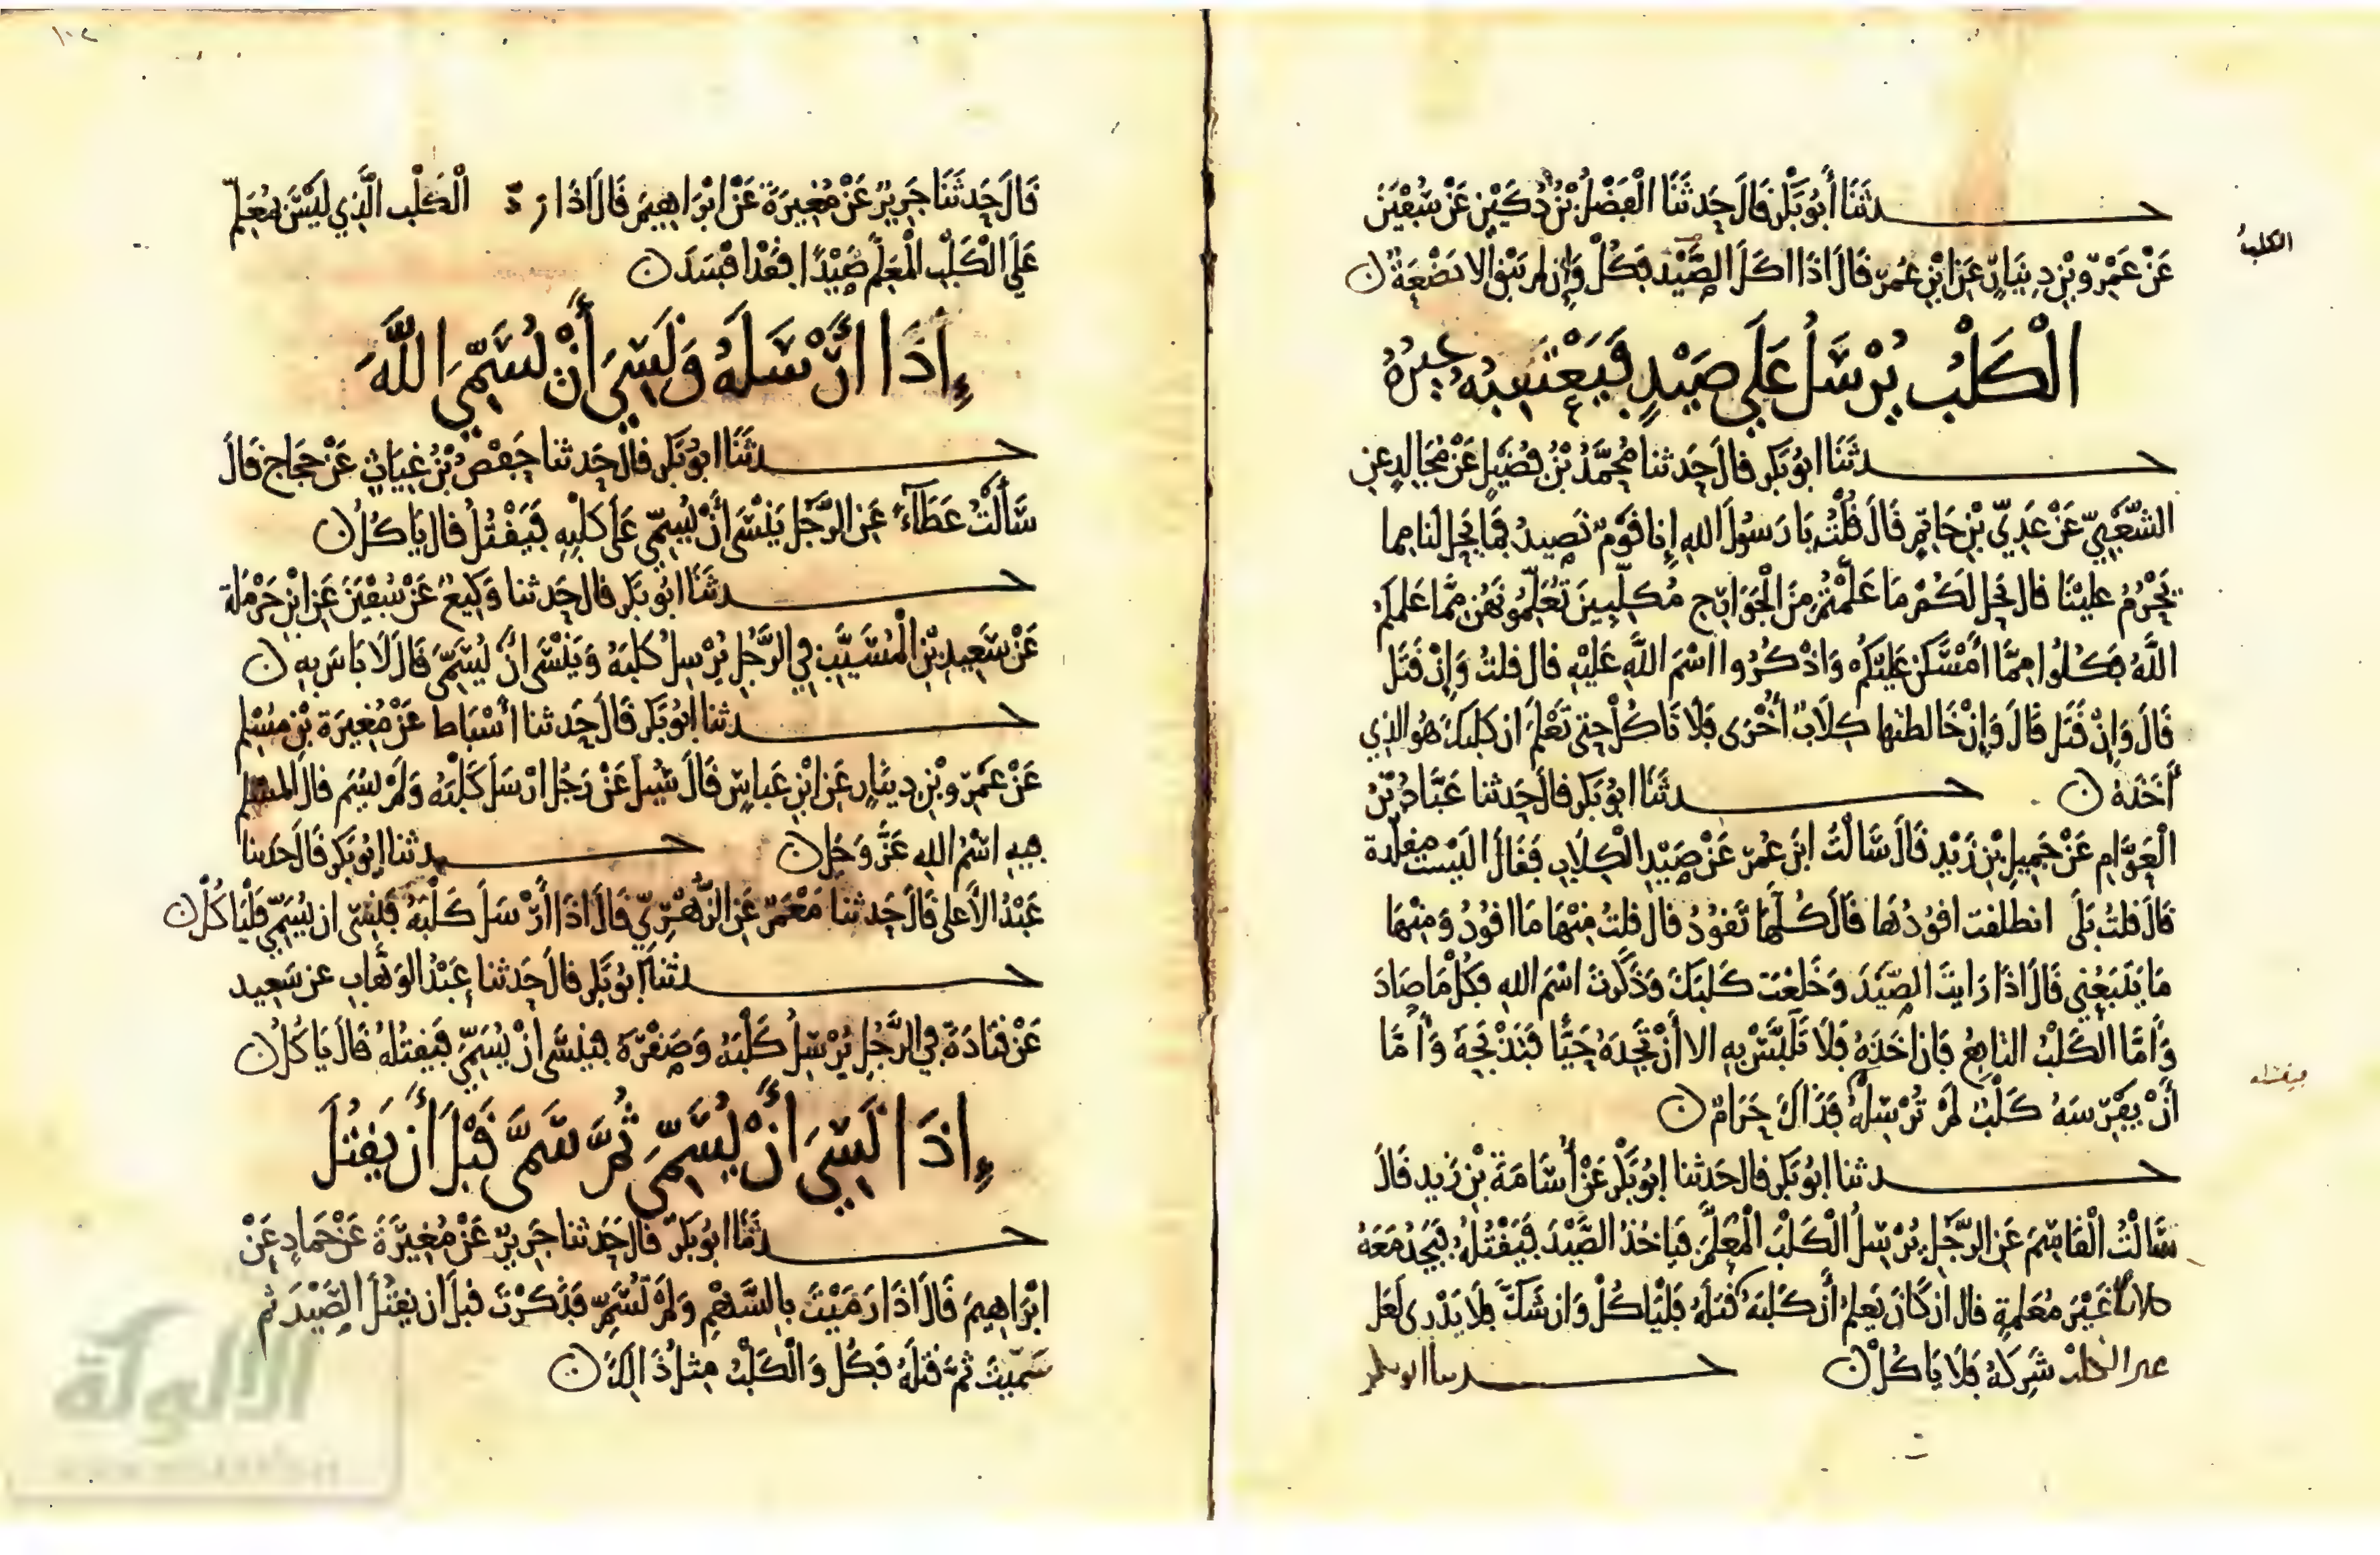 حدثنا أبو بكر قال حدثنا الفضل بن دكين عن سفين
الكلب
عن عمرو بن دينار عن ابن عمر قال اذا اكل الصيد فكل وإن لم يبق الا بضعة ن
الكلب يرسل على صيد فيعتنبه غيره
حدثنا ابو بكر قال حدثنا محمد بن فضيل عن مجالد عن
الشعبي عن عدي بن حاتم قال قلت يا رسول الله إنا قوم نصيد فما يحل لنا مما
يحرم علينا قال يحل لكم ما علمتم من الجوارح مكلبين تعلمونهن مما علمكم
الله فكلوا مما أمسكن عليكم واذكروا اسم الله عليه قال قلت وإن قتل
قال وإن قتل قال وإن خالطها كلاب أخرى فلا تاكل حتى تعلم ان كلبك هو الذي
أخذه ن حدثنا ابو بكر قال حدثنا عباد بن
العوام عن جميل بن زيد قال سالت ابن عمر عن صيد الكلاب فقال اليست مقلدة
قال قلت بلى انطلقت اقودها قال كلها تقود قال قلت منها ما اقود ومنها
ما يتبعني قال اذا رايت الصيد وخلعت كلبك وذكرت اسم الله فكل ما صاد
وأما الكلب التابع فان اخذه فلا تلبس به الا أن تجده حيا فتذبحه وأما
أن يفترسه كلب لم ترسله فذاك حرام ن
فيقتله
حدثنا ابو بكر قال حدثنا ابو بكر عن أسامة بن زيد قال
سالت القاسم عن الرجل يرسل الكلب المعلم فياخذ الصيد فيقتله فيجد معه
كلابا غير معلمة قال ان كان يعلم أن كلبه قتله فلياكل وان شك فلا يدرى لعل
غير الكلب شركه فلا ياكل ن حدثنا ابو بكر
١٠٢
قال حدثنا جرير عن مغيرة عن ابراهيم قال اذا رد الكلب الذي ليس بمعلم
على الكلب المعلم صيدا فقد افسد ن
إذا أرسله ونسي أن يسمي الله
حدثنا ابو بكر قال حدثنا حفص بن غياث عن حجاج قال
سألت عطاء عن الرجل ينسى أن يسمي على كلبه فيقتل قال ياكل ن
حدثنا ابو بكر قال حدثنا وكيع عن سفين عن ابن حرملة
عن سعيد بن المسيب في الرجل يرسل كلبه وينسى ان يسمي قال لا باس به ن
حدثنا ابو بكر قال حدثنا أسباط عن مغيرة بن مسلم
عن عمرو بن دينار عن ابن عباس قال سئل عن رجل ارسل كلبه ولم يسم قال المسلم
فيه اسم الله عز وجل ن حدثنا ابو بكر قال حدثنا
عبد الأعلى قال حدثنا معمر عن الزهري قال اذا أرسل كلبه فنسي ان يسمي فلياكل ن
حدثنا ابو بكر قال حدثنا عبد الوهاب عن سعيد
عن قتادة في الرجل يرسل كلبه وصقره فينسى ان يسمي فيقتله قال ياكل ن
إذا نسي ان يسمي ثم سمى قبل أن يقتل
حدثنا ابو بكر قال حدثنا جرير عن مغيرة عن حماد عن
ابراهيم قال اذا رميت بالسهم ولم تسم فذكرت قبل ان يقتل الصيد ثم
سميت ثم قتله فكل والكلب مثل ذلك ن
الألوكة